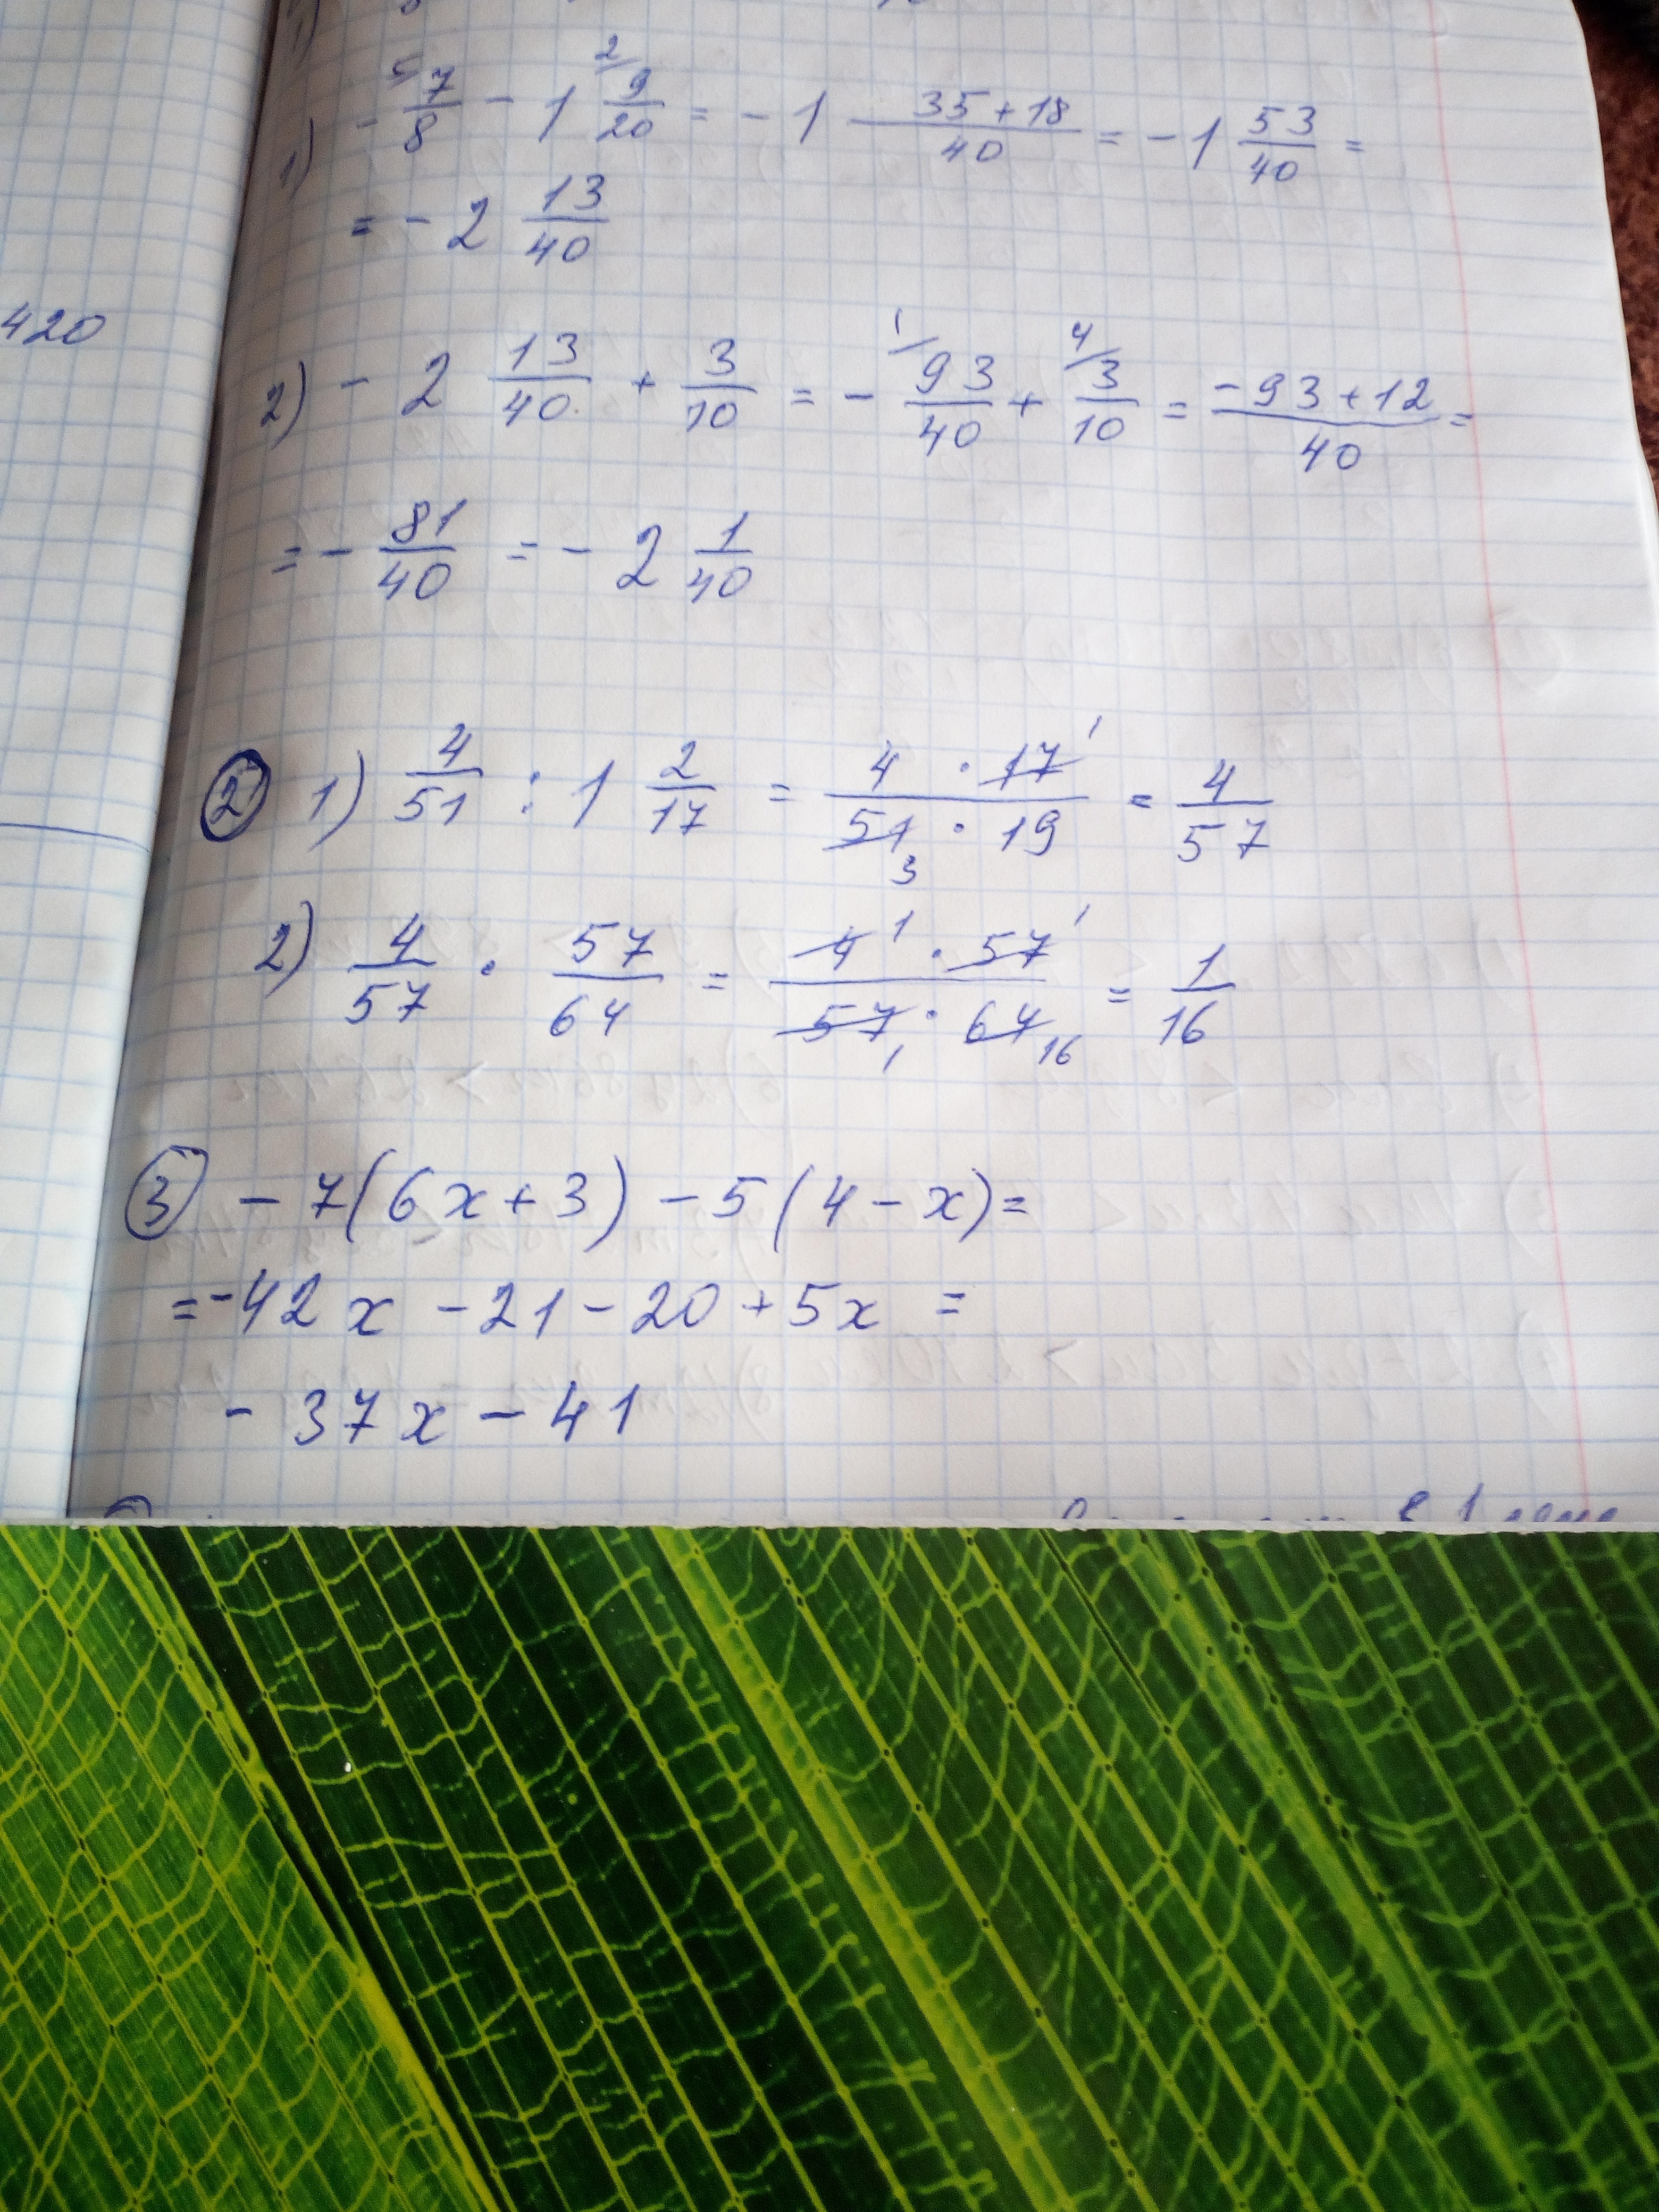 1) - 7/8 - 1 9/20 = - 1 (35 + 18)/40 = - 1 53/40 =
= - 2 13/40
420
2) - 2 13/40 + 3/10 = - 93/40 + 3/10 = (- 93 + 12)/40 =
= - 81/40 = - 2 1/40
2 1) 4/51 : 1 2/17 = (4 · 17)/(51 · 19) = 4/57
2) 4/57 · 57/64 = (4 · 57)/(57 · 64) = 1/16
3 - 7(6x + 3) - 5(4 - x) =
= -42x - 21 - 20 + 5x =
- 37x - 41